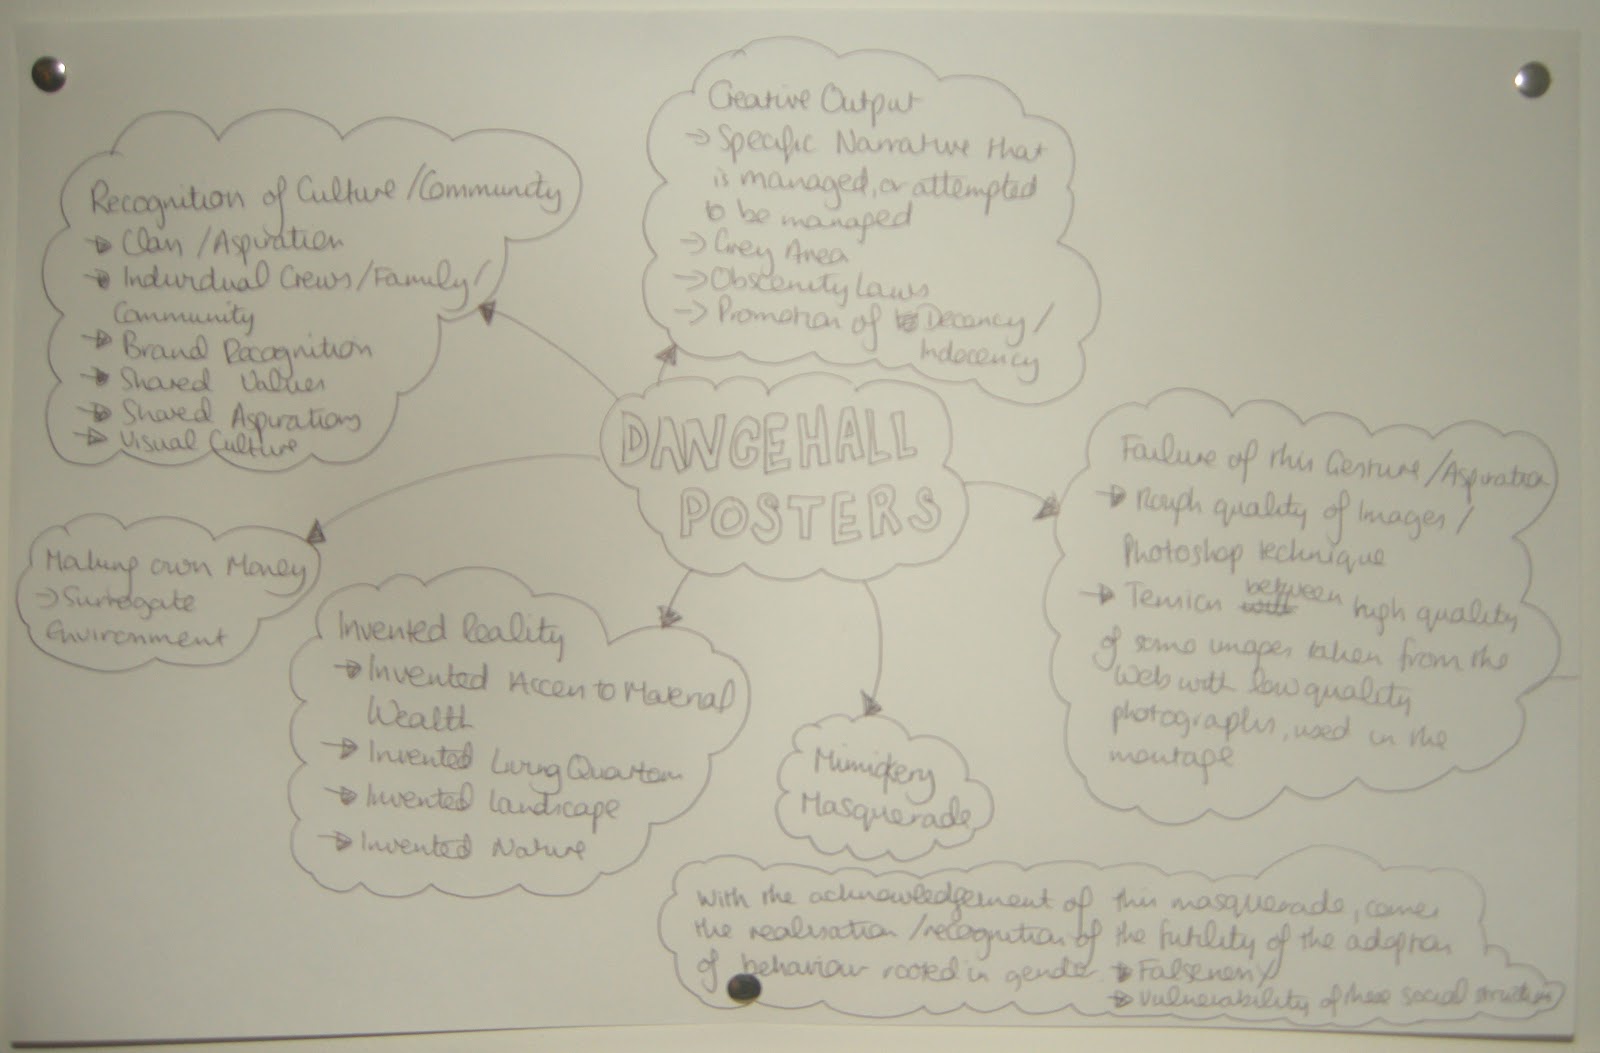 Creative Output
→ Specific Narrative that
is managed, or attempted
to be managed
→ Grey Area
→ Obscenity Laws
→ Promotion of Decency /
Indecency
Recognition of Culture / Community
→ Clan / Aspiration
→ Individual Crews / Family /
Community
→ Brand Recognition
→ Shared Values
→ Shared Aspirations
→ Visual Culture
DANCEHALL
POSTERS
Failure of this Gesture / Aspiration
→ Rough quality of Images /
Photoshop technique
→ Tension between high quality
of some images taken from the
Web with low quality
photographs, used in the
montage
Making own Money
→ Surrogate
Environment
Invented Reality
→ Invented Access to Material
Wealth
→ Invented Living Quarters
→ Invented Landscape
→ Invented Nature
Mimickery
Masquerade
With the acknowledgement of this masquerade, comes
the realisation / recognition of the futility of the adoption
of behaviour rooted in gender → Falseness /
→ Vulnerability of these social structures